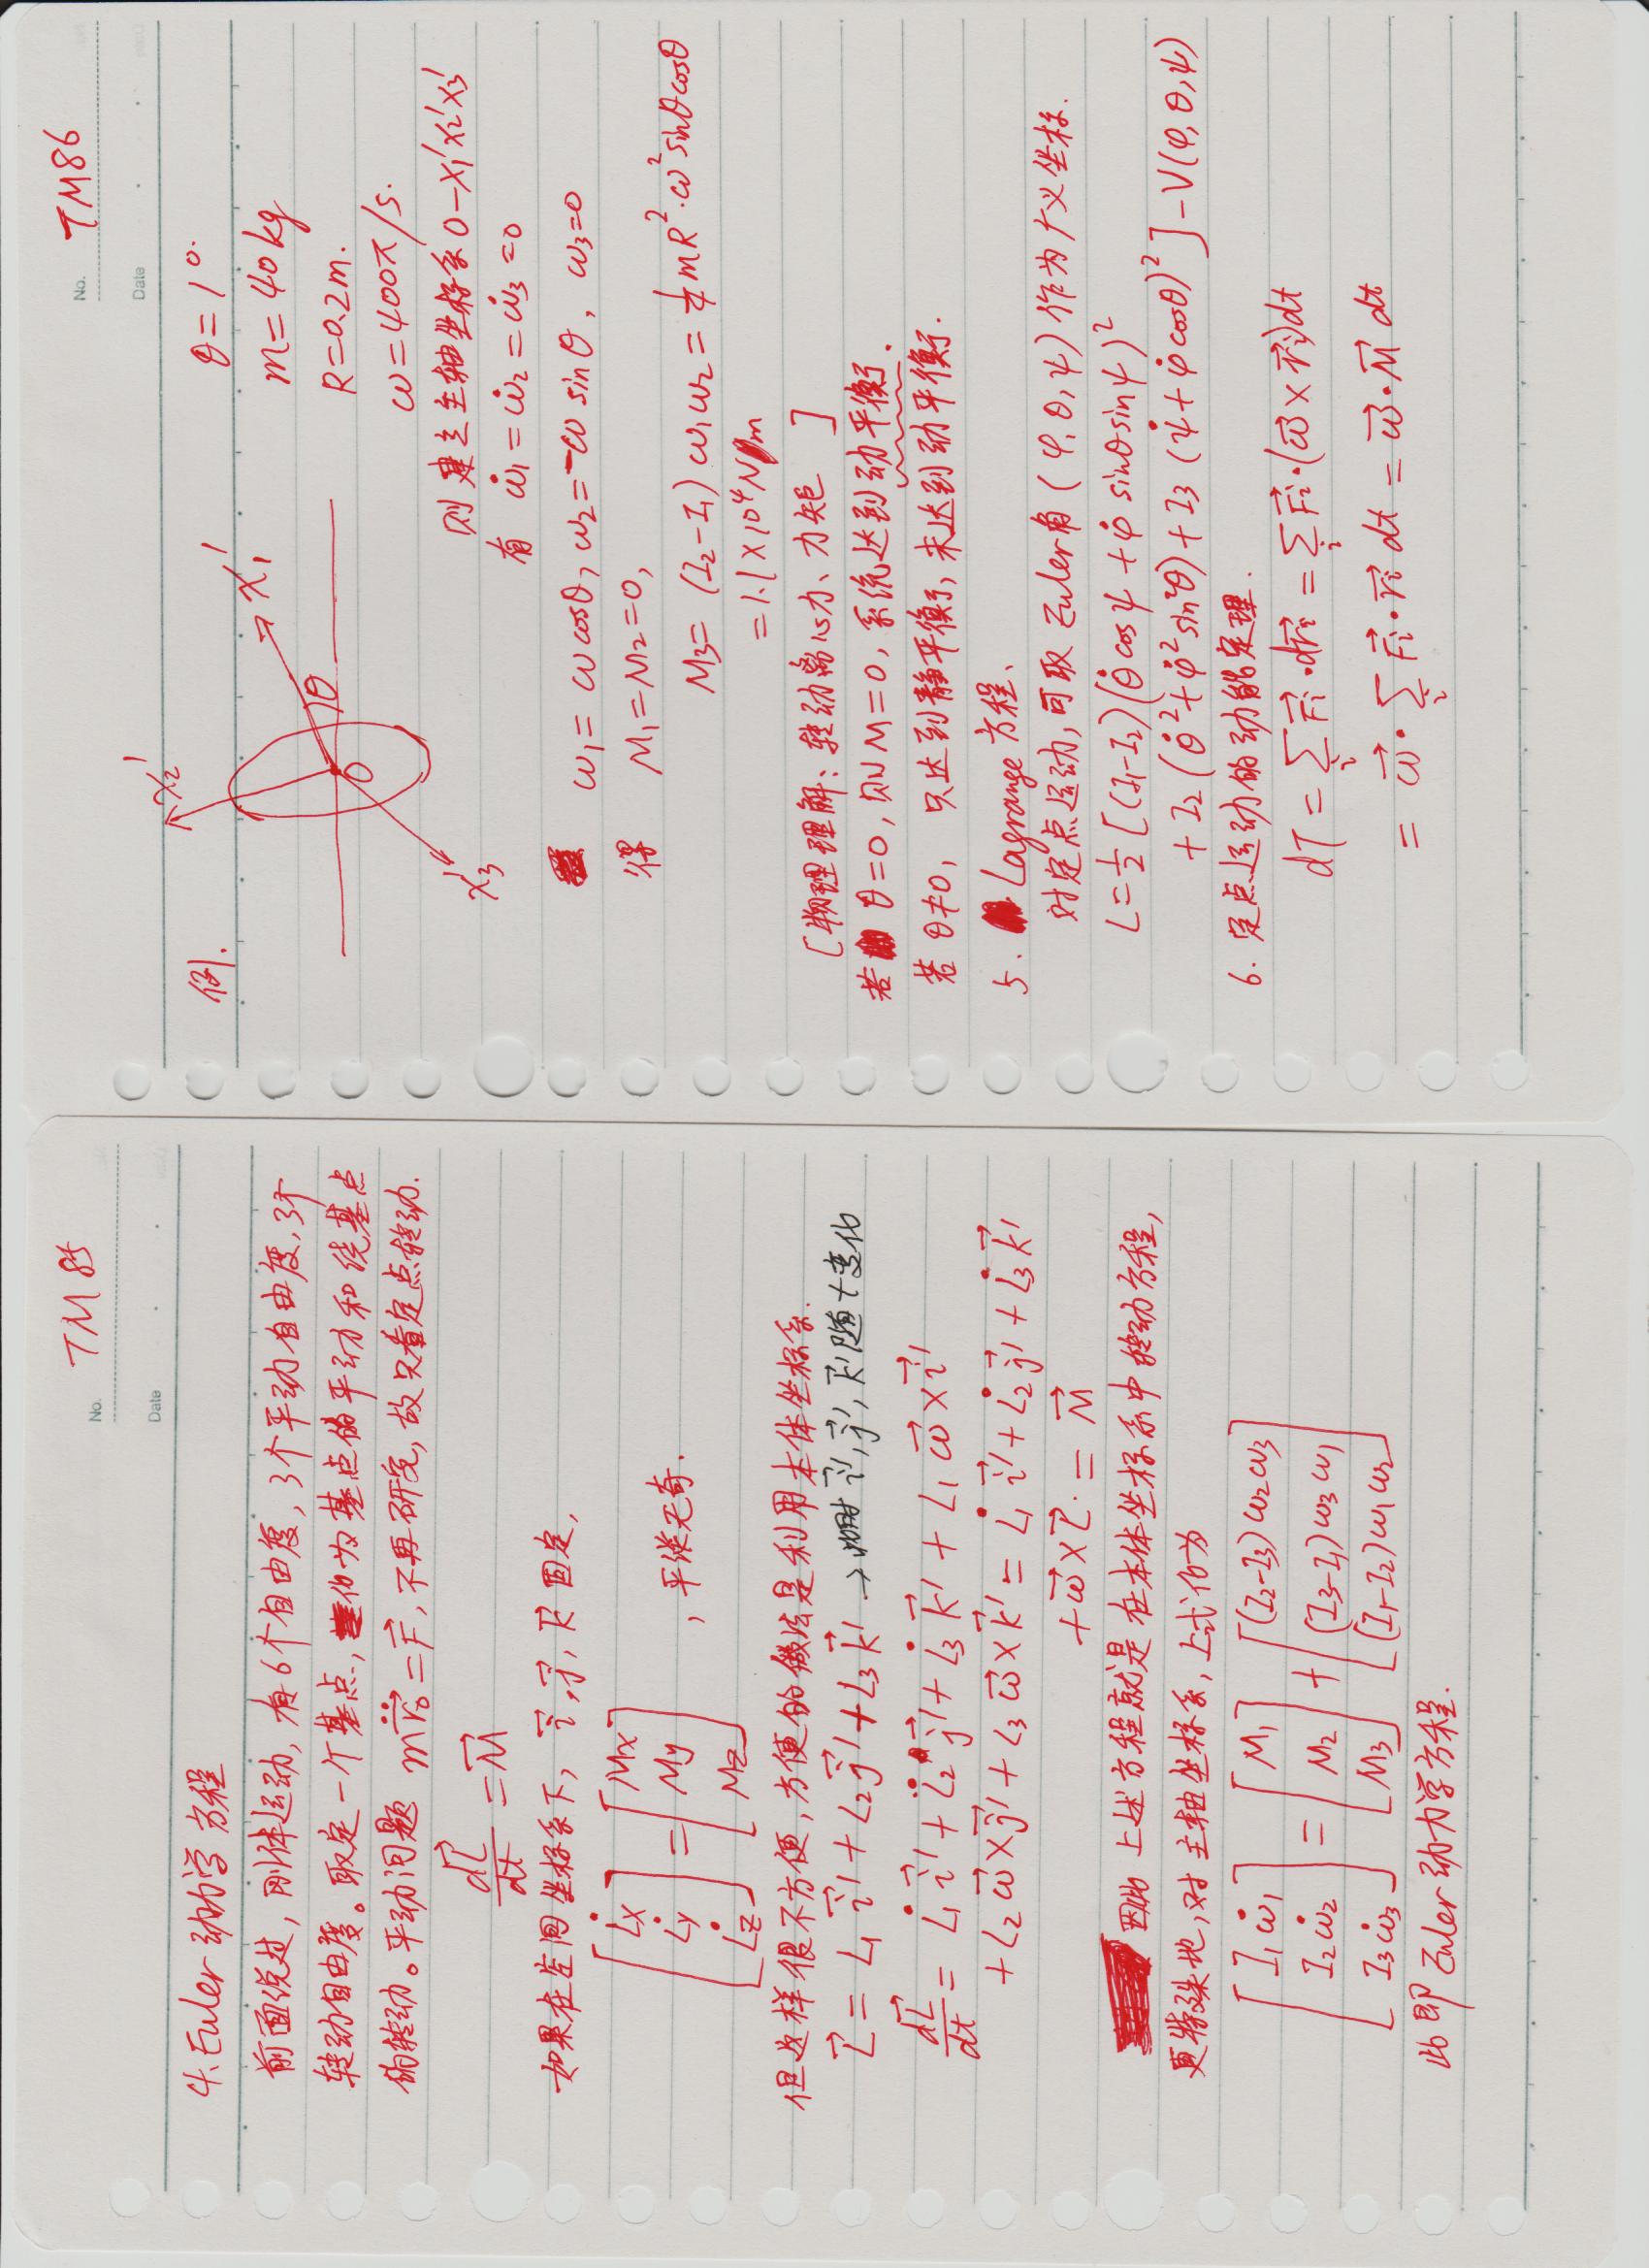 No. TM 85
Date
4. Euler 动力学方程
前面说过, 刚体运动, 有6个自由度, 3个平动自由度, 3个
转动自由度。取定一个基点, 化为基点的平动和绕基点
的转动。平动问题 m\ddot{\vec{r_0}} = \vec{F}, 不再研究, 故只看定点转动.
\frac{d\vec{L}}{dt} = \vec{M}
如果在空间坐标系下, \vec{i}, \vec{j}, \vec{k} 固定,
\begin{bmatrix} \dot{L}_x \\ \dot{L}_y \\ \dot{L}_z \end{bmatrix} = \begin{bmatrix} M_x \\ M_y \\ M_z \end{bmatrix} , 平淡无奇.
但这样很不方便, 方便的做法是利用本体坐标系.
\vec{L} = L_1 \vec{i}' + L_2 \vec{j}' + L_3 \vec{k}' → 此时 \vec{i}', \vec{j}', \vec{k}' 随 t 变化
\frac{d\vec{L}}{dt} = \dot{L}_1 \vec{i}' + \dot{L}_2 \vec{j}' + \dot{L}_3 \vec{k}' + L_1 \vec{ω} × \vec{i}'
+ L_2 \vec{ω} × \vec{j}' + L_3 \vec{ω} × \vec{k}' = \dot{L}_1 \vec{i}' + \dot{L}_2 \vec{j}' + \dot{L}_3 \vec{k}'
+ \vec{ω} × \vec{L}. = \vec{M}
因此 上述方程就是在本体坐标系中转动方程,
更特殊地, 对主轴坐标系, 上式化为
\begin{bmatrix} I_1 \dot{ω}_1 \\ I_2 \dot{ω}_2 \\ I_3 \dot{ω}_3 \end{bmatrix} = \begin{bmatrix} M_1 \\ M_2 \\ M_3 \end{bmatrix} + \begin{bmatrix} (I_2-I_3) ω_2 ω_3 \\ (I_3-I_1) ω_3 ω_1 \\ (I_1-I_2) ω_1 ω_2 \end{bmatrix}
此即 Euler 动力学方程.
No. TM86
Date
例.
x_2'
x_1'
θ
O
x_3'
θ = 1°.
m = 40 kg
R = 0.2m.
ω = 400π/s.
则建立主轴坐标系 O-x_1'x_2'x_3'
有 \dot{ω}_1 = \dot{ω}_2 = \dot{ω}_3 = 0
ω_1 = ω cosθ, ω_2 = -ω sinθ, ω_3 = 0
得 M_1 = M_2 = 0,
M_3 = (I_2-I_1) ω_1 ω_2 = \frac{1}{4} mR^2·ω^2 sinθ cosθ
= 1.1×10^4 N m
[物理理解: 转动离心力、力矩 ]
若 θ=0, 则 M=0, 系统达到动平衡.
若 θ≠0, 只达到静平衡, 未达到动平衡.
5. Lagrange 方程.
对定点运动, 可取 Euler角 (φ, θ, ψ) 作为广义坐标.
L = \frac{1}{2} [(I_1-I_2)(\dot{θ} cosψ + \dot{φ} sinθ sinψ)^2
+ I_2 (\dot{θ}^2 + \dot{φ}^2 sin^2θ) + I_3 (\dot{ψ} + \dot{φ} cosθ)^2] - V(φ, θ, ψ)
6. 定点运动的动能定理.
dT = \sum_i \vec{F_i}·d\vec{r_i} = \sum_i \vec{F_i}·(\vec{ω} × \vec{r_i})dt
= \vec{ω}· \sum_i \vec{F_i}·\vec{r_i} dt = \vec{ω}·\vec{M} dt